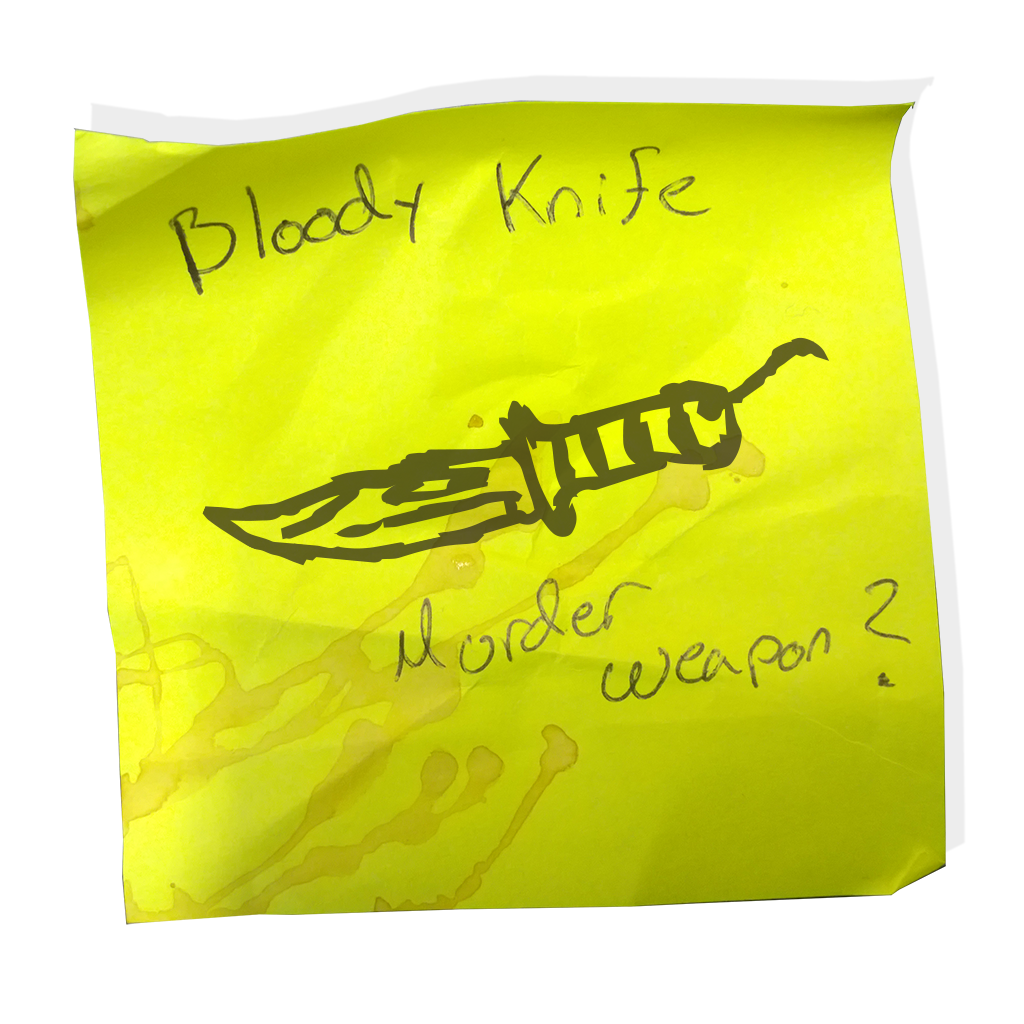 Bloody Knife
Murder
weapon?